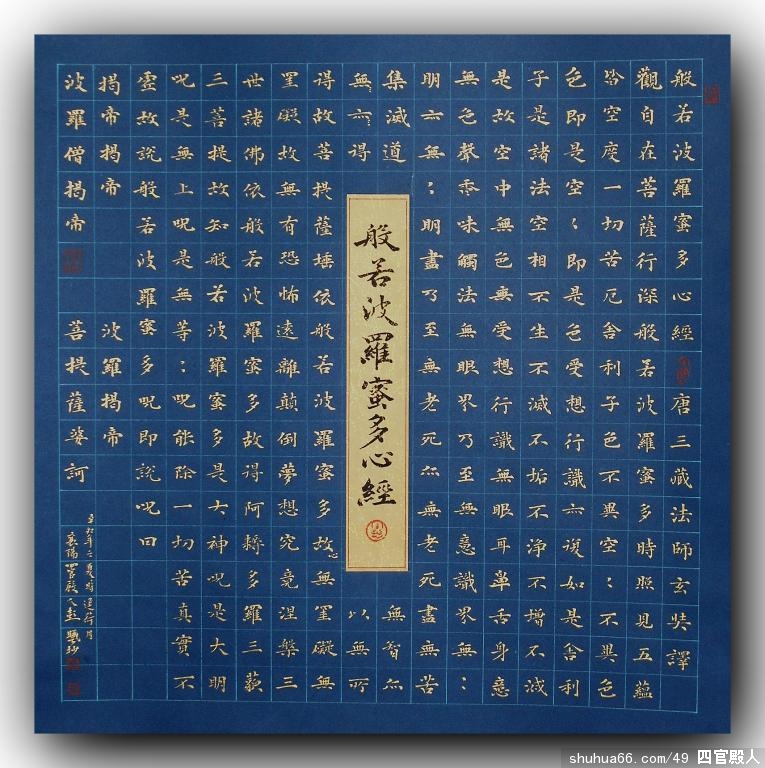 般若波羅蜜多心經 唐三藏法師玄奘譯
觀自在菩薩行深般若波羅蜜多時照見五蘊
皆空度一切苦厄舍利子色不異空〻不異色
色即是空〻即是色受想行識亦復如是舍利
子是諸法空相不生不滅不垢不淨不增不減
是故空中無色無受想行識無眼耳鼻舌身意
無色聲香味觸法無眼界乃至無意識界無〻
明亦無〻明盡乃至無老死亦無老死盡無苦
集滅道 無智亦
無亦得 以無所
般若波羅蜜多心經
得故菩提薩埵依般若波羅蜜多故心無罣礙無
罣礙故無有恐怖遠離顛倒夢想究竟涅槃三
世諸佛依般若波羅蜜多故得阿耨多羅三藐
三菩提故知般若波羅蜜多是大神咒是大明
咒是無上咒是無等〻咒能除一切苦真實不
虛故說般若波羅蜜多咒即說咒曰
揭帝揭帝 波羅揭帝
波羅僧揭帝 菩提薩婆訶
襄陽
shuhua66.com/49 四官殿人